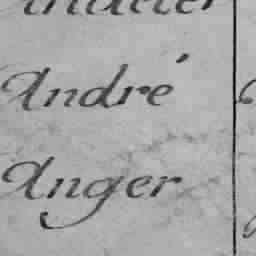 André
Anger